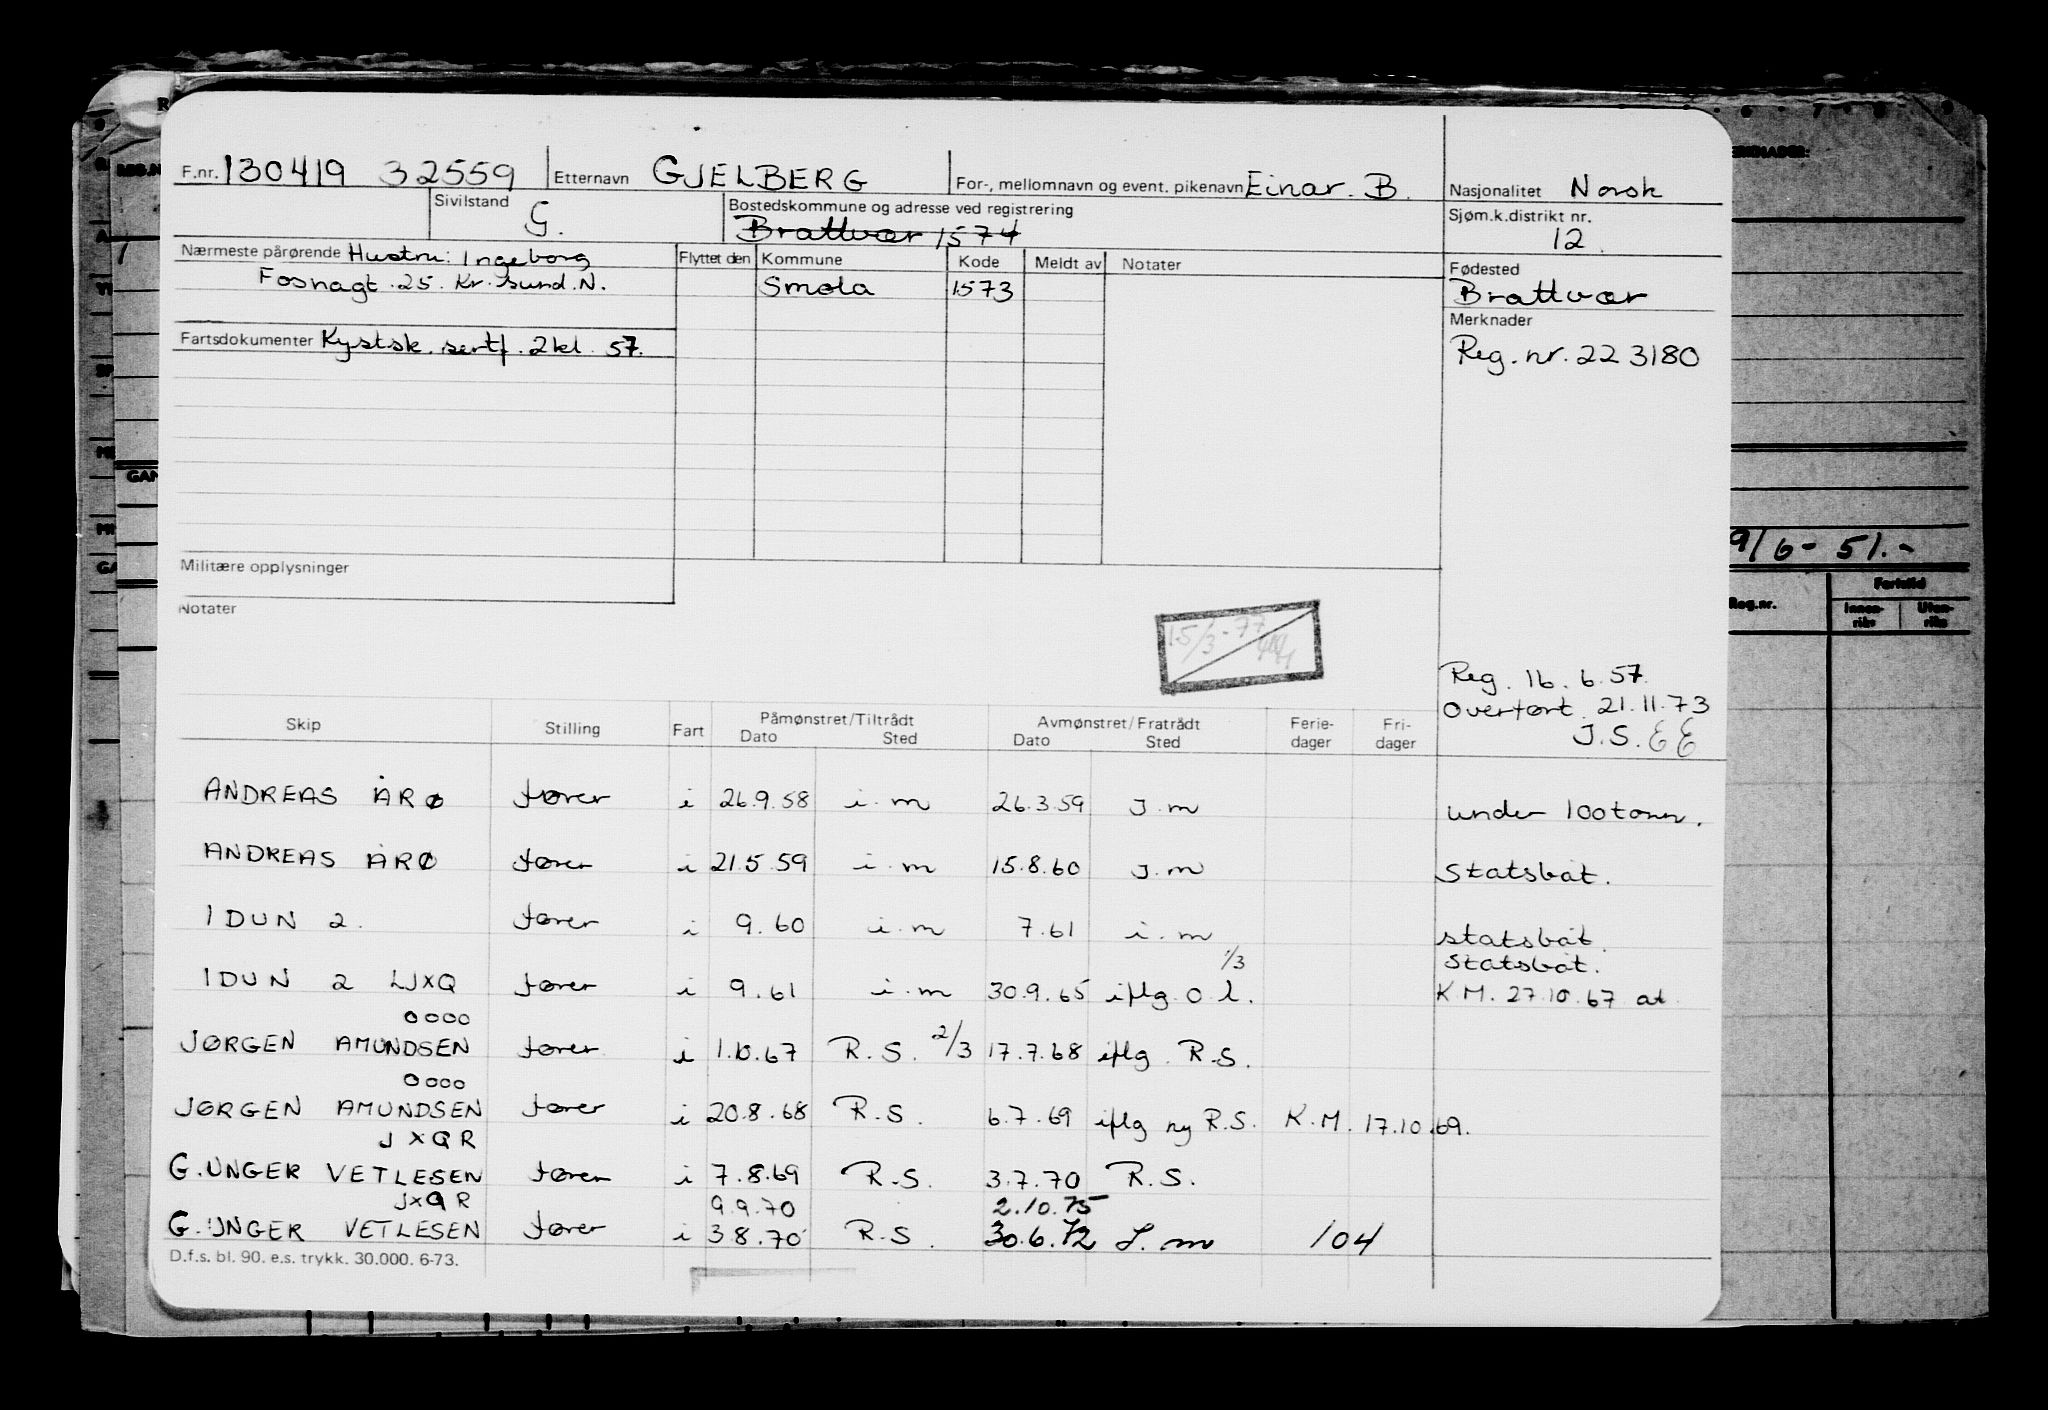 F.nr. 130419 32559 Etternavn GJELBERG For-, mellomnavn og event. pikenavn Einar. B. Nasjonalitet Norsk
Sivilstand G. Bostedskommune og adresse ved registrering Brattvær 1574 Sjøm.k.distrikt nr. 12.
Nærmeste pårørende Hustru: Ingeborg Flyttet den Kommune Kode Meldt av Notater Fødested
Fosnagt. 25. Kr. sund. N. Smøla 1573 Brattvær
Fartsdokumenter Kystsk. sertf. 2kl. 57. Merknader
Reg. nr. 223180
Militære opplysninger
Notater
15/3-77
Reg. 16. 6. 57
Overført 21.11.73
J.S.
Skip Stilling Fart Påmønstret/Tiltrådt Avmønstret/Fratrådt Ferie- Fri-
Dato Sted Dato Sted dager dager
ANDREAS ÅRØ fører i 26.9.58 i.m 26.3.59 I.m under 100 tonn.
ANDREAS ÅRØ fører i 21.5.59 i.m 15.8.60 I.m Statsbåt.
IDUN 2. fører i 9.60 i.m 7.61 i.m statsbåt.
1/3 Statsbåt.
IDUN 2 LJXQ fører i 9.61 i.m 30.9.65 iflg. O.L. K.M. 27.10.67 at
oooo
JØRGEN AMUNDSEN fører i 1.10.67 R.S. 2/3 17.7.68 iflg. R.S.
oooo
JØRGEN AMUNDSEN fører i 20.8.68 R.S. 6.7.69 iflg ny R.S. K.M. 17.10.69.
JXQR
G. UNGER VETLESEN fører i 7.8.69 R.S. 3.7.70 R.S.
JXQR 9.9.70 2.10.75
G. UNGER VETLESEN fører i 3.8.70 R.S. 30.6.72 I.m 104
D.f.s. bl. 90. e.s. trykk. 30.000. 6-73.
9/6-51.-
Reg.nr.
Fartstid
Innen-
riks
Uten-
riks